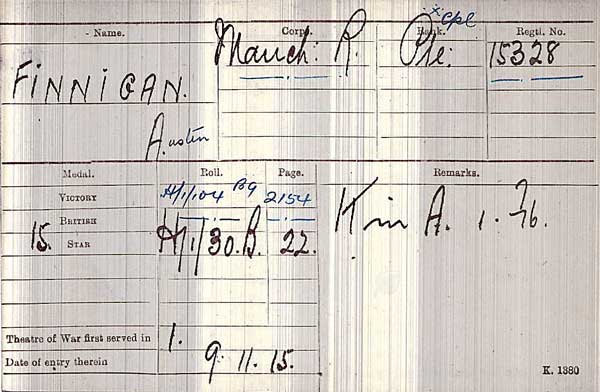 Name. Corps. Rank. Regtl. No.
x Cpl
Manch: R. Pte. 15328
FINNIGAN.
Austin
Medal. Roll. Page. Remarks.
VICTORY H/1/104 B9 2154
BRITISH
15. STAR H/1/30.B. 22. K in A. 1.7.16.
Theatre of War first served in 1.
Date of entry therein 9.11.15.
K. 1380